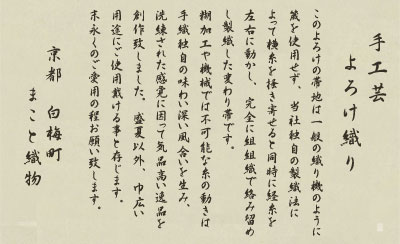 手工芸
よろけ織り
このよろけの帯地は一般の織り機のように
筬を使用せず、当社独自の製織法に
よって横糸を掻き寄せると同時に経糸を
左右に動かし、完全に組織で絡み留め
し製織した変わり帯です。
糊加工や機械では不可能な糸の動きは
手織独自の味わい深い風合いを生み、
洗練された感覚に因って気品高い逸品を
創作致しました。盛夏以外、巾広い
用途にご使用戴ける事と存じます。
末永くのご愛用の程お願い致します。
京都 白梅町
まこと織物